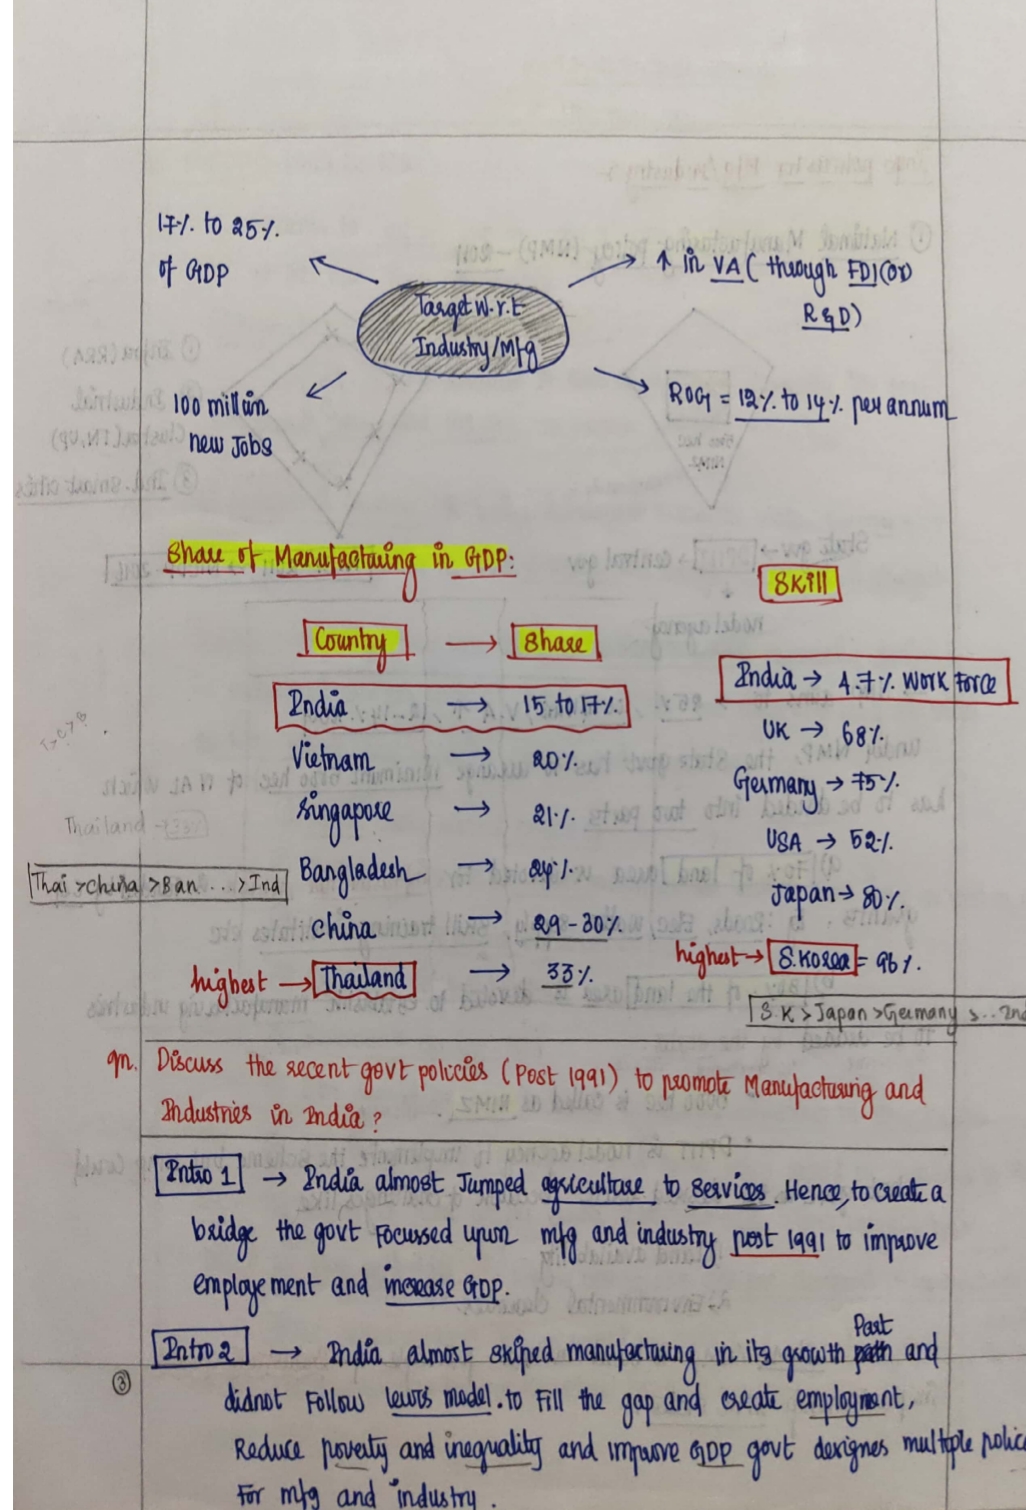 17% to 25%
of GDP
Target w.r.t
Industry/Mfg
↑ in VA ( through FDI (or)
R&D)
100 million
new Jobs
ROG = 12% to 14% per annum
Share of Manufacturing in GDP:
Skill
Country → Share
India → 15 to 17%
Vietnam → 20%
Singapore → 21%
Bangladesh → 24%
China → 29-30%
highest → Thailand → 33%
Thailand → 33%
Thai > China > Ban ... > Ind
India → 4.7% Work Force
UK → 68%
Germany → 75%
USA → 52%
Japan → 80%
highest → S.Korea = 96%
S.K > Japan > Germany > ... Ind
qn. Discuss the recent govt policies (Post 1991) to promote Manufacturing and
Industries in India?
Intro 1 → India almost Jumped agriculture to services. Hence, to create a
bridge the govt Focussed upon mfg and industry post 1991 to improve
employement and increase GDP.
Intro 2 → India almost skiped manufacturing in its growth Past and
③ didnot Follow lewis model. to Fill the gap and create employment,
Reduce poverty and inequality and improve GDP govt designes multiple polic
For mfg and industry.